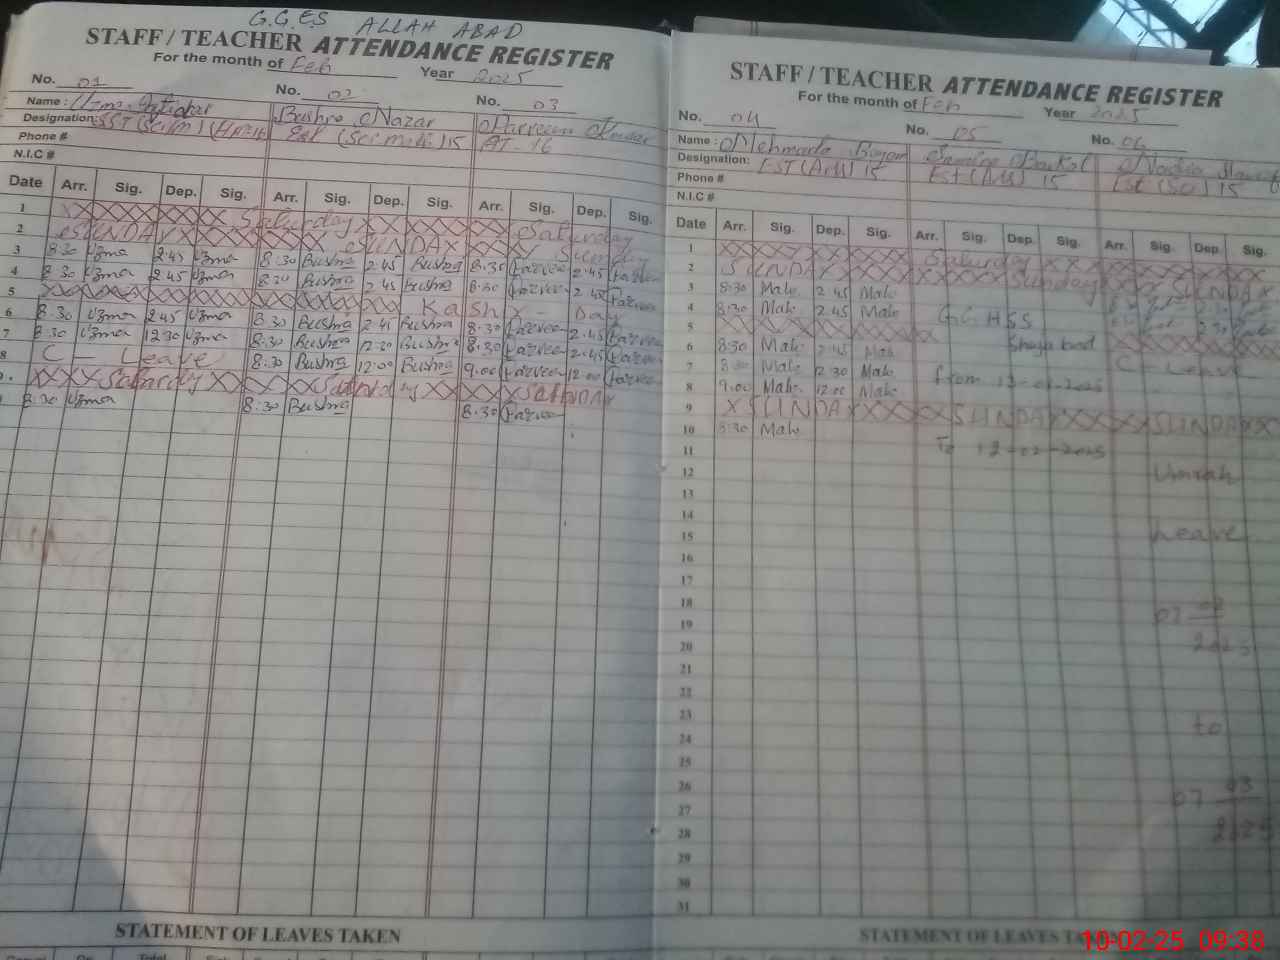 G.G.E.S ALLAH ABAD
STAFF / TEACHER ATTENDANCE REGISTER
For the month of Feb Year 2025
No. 01 No. 02 No. 03
Name : Uzma Bushra Nazar Parveen
Designation: SST (Sci.m) Est (Sci math) 15 AT - 16
Phone #
N.I.C #
Date Arr. Sig. Dep. Sig. Arr. Sig. Dep. Sig. Arr. Sig. Dep. Sig.
1 XXXXXXXX Saturday XX XXXXX Saturday
2 SUNDAY XXXXXXX SUNDAY XXXX Sunday
3 8.30 Uzma 2.45 Uzma 8.30 Bushra 2.45 Bushra 8.30 Parveen 2.45 Parveen
4 8.30 Uzma 2.45 Uzma 8.30 Bushra 2.45 Bushra 8.30 Parveen 2.45 Parveen
5 XXXXXXXXXXXXXX Kashx - Day
6 8.30 Uzma 2.45 Uzma 8.30 Bushra 2.45 Bushra 8.30 Parveen 2.45 Parveen
7 8.30 Uzma 12.30 Uzma 8.30 Bushra 12.30 Bushra 8.30 Parveen 2.45 Parveen
8 C - Leave 8.30 Bushra 12.00 Bushra 9.00 Parveen 12.00 Parveen
9. XXXX Saturday XXXX Saturday XXXX SUNDAY
8.30 Uzma 8.30 Bushra 8.30 Parveen
STATEMENT OF LEAVES TAKEN
STAFF / TEACHER ATTENDANCE REGISTER
For the month of Feb Year 2025
No. 04 No. 05 No. 06
Name : Mehmada Samina Nadia
Designation: EST (Arts) 15 Est (Arts) 15 Est (Sci) 15
Phone #
N.I.C #
Date Arr. Sig. Dep. Sig. Arr. Sig. Dep. Sig. Arr. Sig. Dep. Sig.
1 XXXXXXXX Saturday XXXXXXX
2 SUNDAY XXXXX Sunday XXX SUNDAY
3 8:30 Mah. 2.45 Mah.
4 8:30 Mah. 2.45 Mah. G.G.H.S.S
5 XXXXXXXXX
6 8:30 Mah. 2.45 Mah. Shujabad
7 8:30 Mah. 2.30 Mah. C - Leave
8 9.00 Mah. 12.00 Mah. from
9 X SUNDAY XXXXX SUNDAY XXXXX SUNDAY XX
10 8:30 Mah.
11 To 12-02-2025
12 Umrah
13
14
15 Leave
16
17
18
19 07 02
20 2025
21
22
23
24 to
25
26
27 07 03
28 2025
29
30
31
STATEMENT OF LEAVES TAKEN
10-02-25 09:38